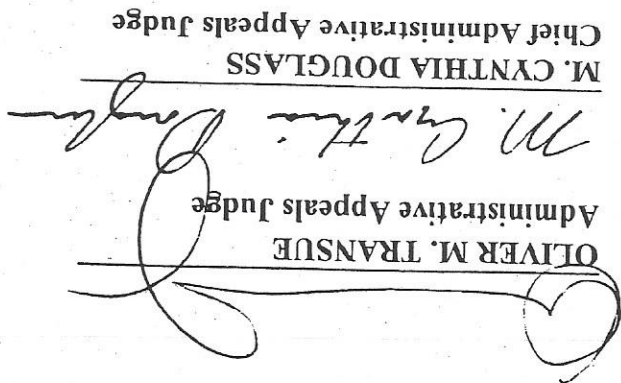 OLIVER M. TRANSUE
Administrative Appeals Judge
M. Cynthia Douglass
M. CYNTHIA DOUGLASS
Chief Administrative Appeals Judge